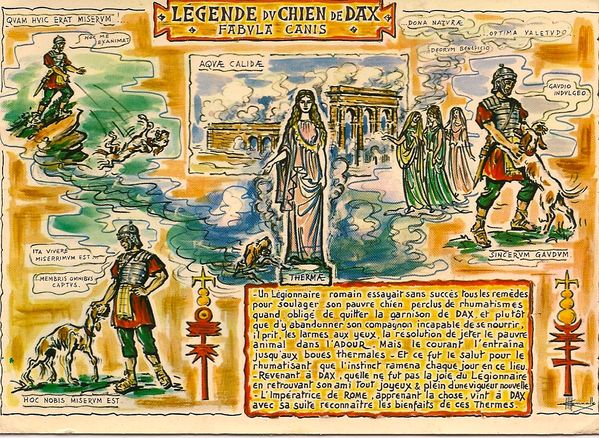 LÉGENDE DU CHIEN DE DAX
FABVLA CANIS
QVAM HVIC ERAT MISERVM !
HOC ME
EXANIMAT
AQVÆ CALIDÆ
DONA NATVRÆ
OPTIMA VALETVDO.
DEORVM BENEFICIO
GAVDIO
INDVLGEO
SINCERVM GAVDVM.
THERMÆ
ITA VIVERE
MISERRIMVM EST
MEMBRIS OMNIBVS
CAPTVS.
HOC NOBIS MISERVM EST.
- Un Légionnaire romain essayait sans succés tous les remèdes
pour soulager son pauvre chien perclus de rhumatismes
quand obligé de quitter la garnison de DAX et plutôt
que d'y abandonner son compagnon incapable de se nourrir,
il prit, les larmes aux yeux la résolution de jeter le pauvre
animal dans l'ADOUR. Mais le courant l'entraîna
jusqu'aux boues thermales - Et ce fut le salut pour le
rhumatisant que l'instinct ramena chaque jour en ce lieu.
- Revenant à DAX, quelle ne fut pas la joie du Légionnaire
en retrouvant son ami tout joyeux & plein d'une vigueur nouvelle
- L'Impératrice de ROME, apprenant la chose, vint à DAX
avec sa suite reconnaître les bienfaits de ces Thermes.